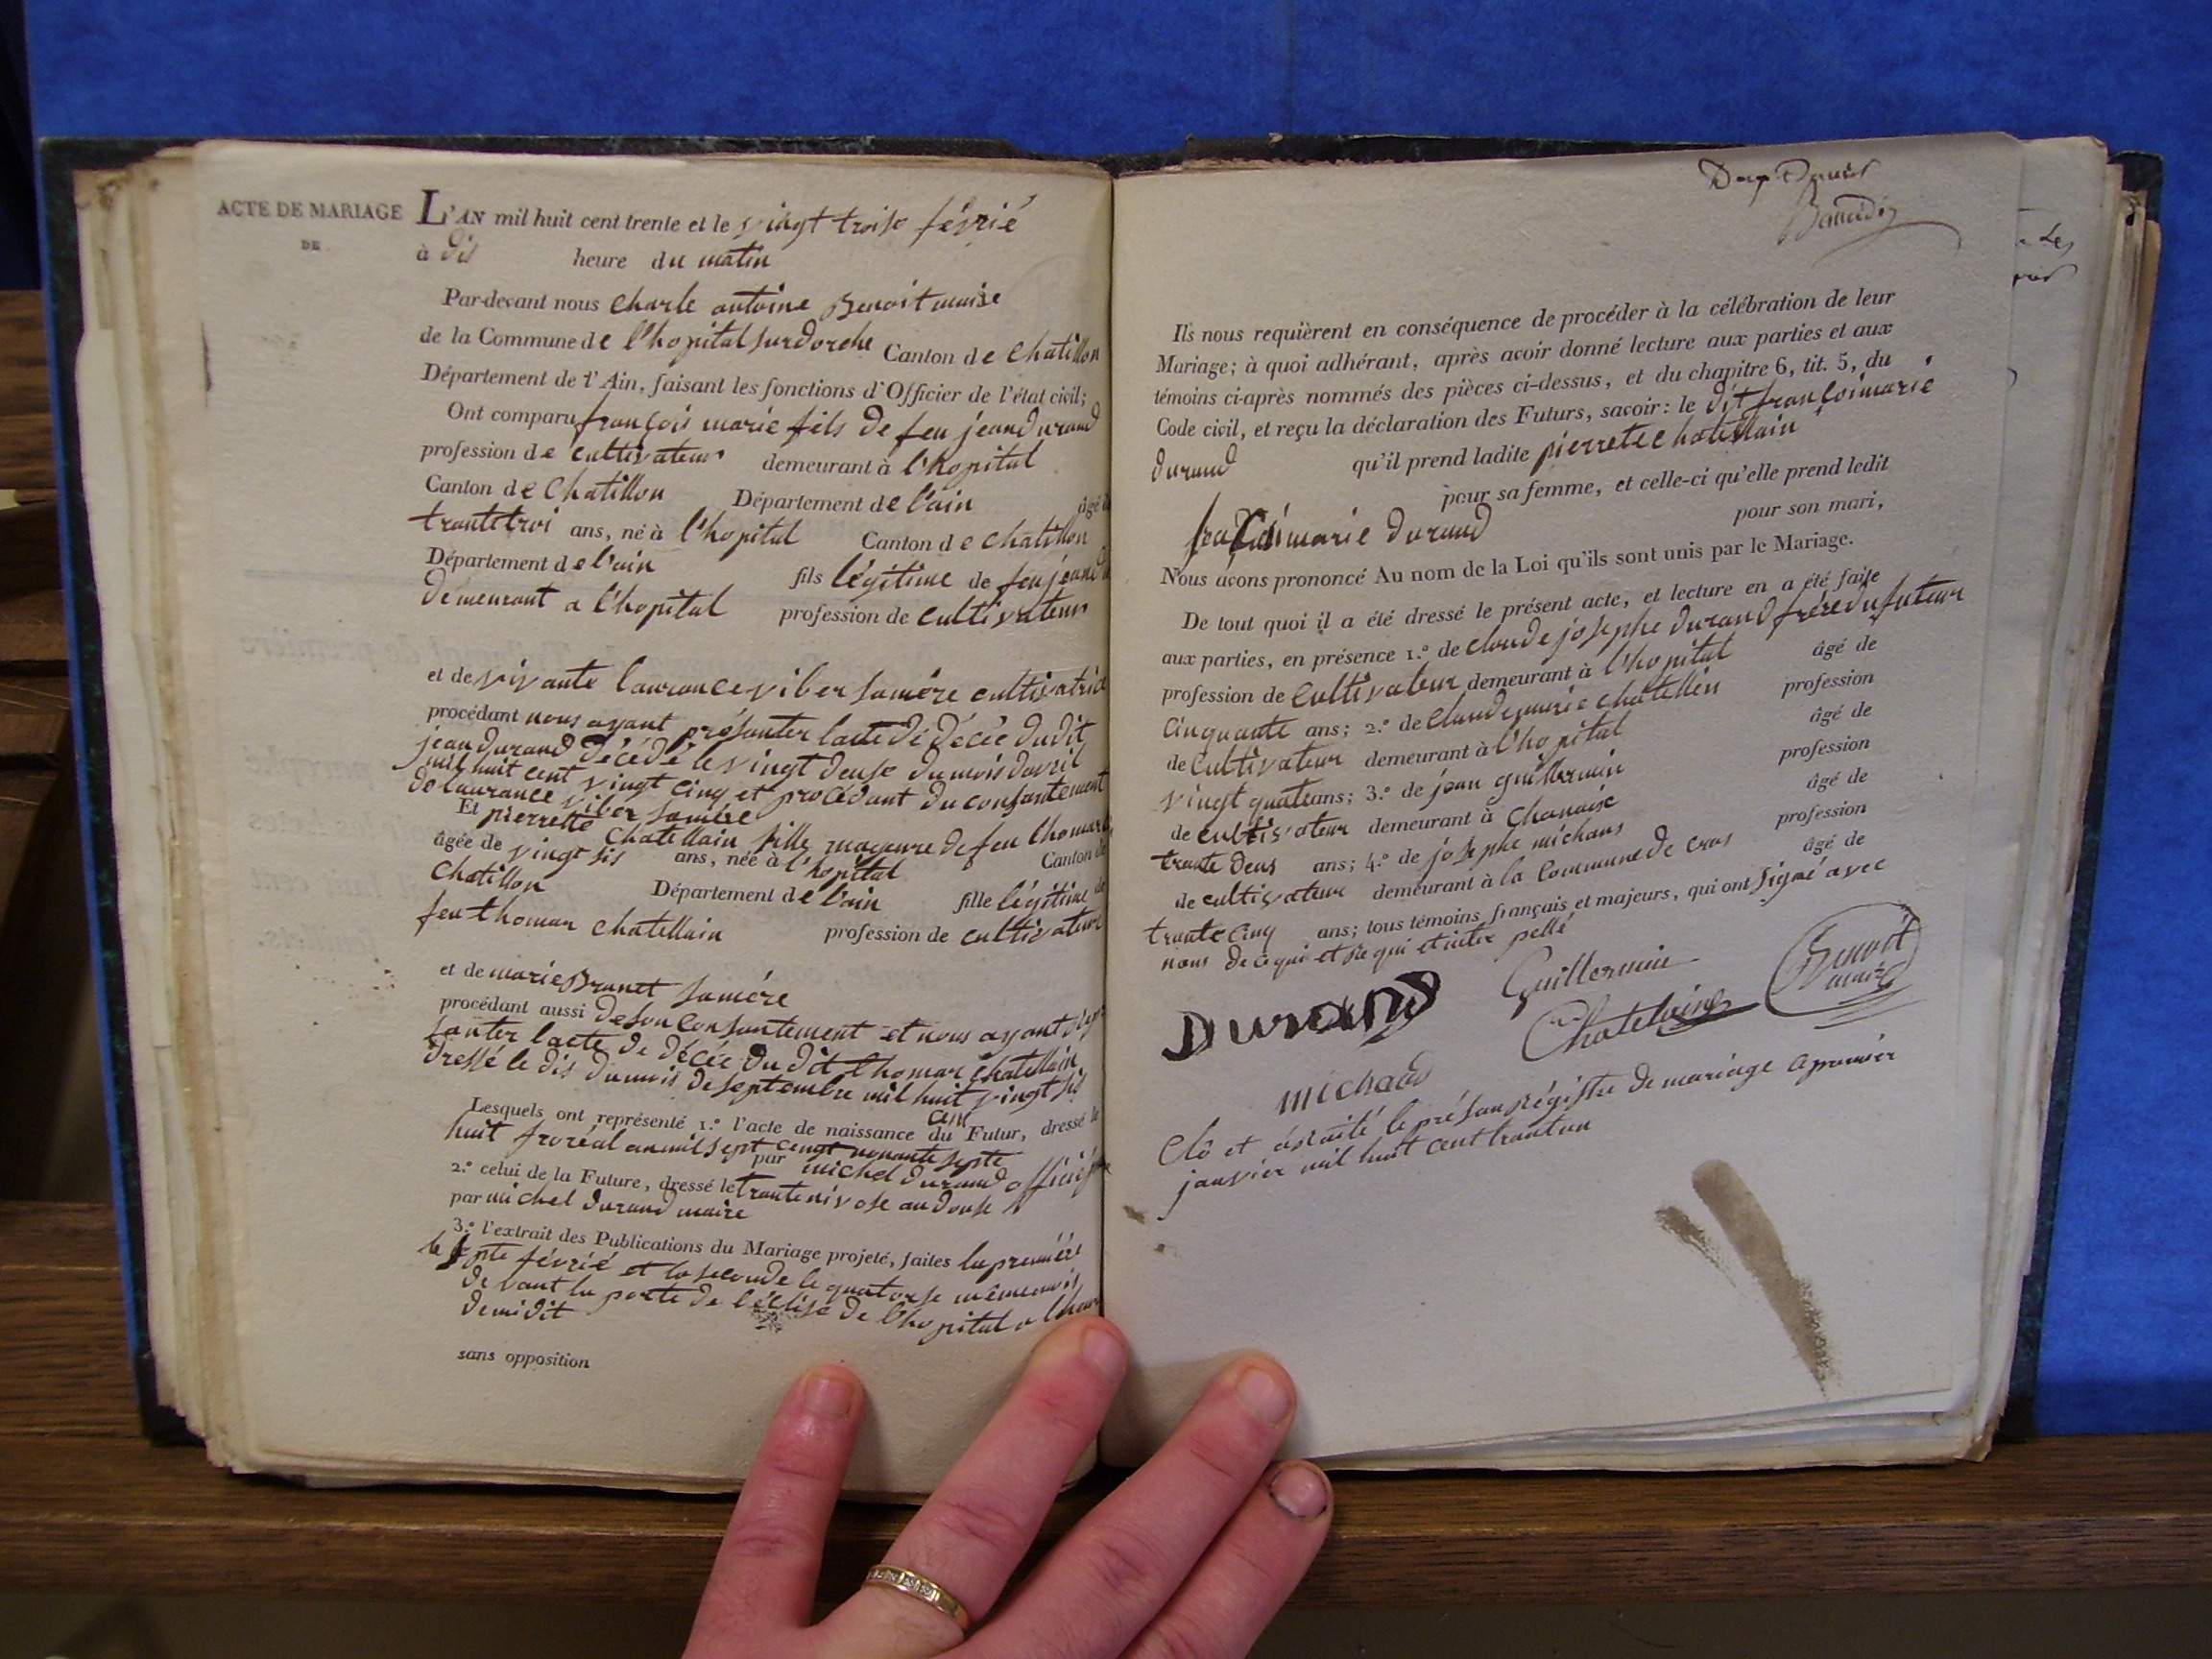 ACTE DE MARIAGE
DE
L'AN mil huit cent trente et le vingt troise févrié
à dis heure du matin
Par-devant nous charle antoine Benoit maise
de la Commune de l'hopital surdorche Canton de chatillon
Département de l'Ain, faisant les fonctions d'Officier de l'état civil;
Ont comparu françois marie fils de feu jean durand
profession de cultivateur demeurant à l'hopital
Canton de Chatillon Département de l'ain âgé de
trantetroi ans, né à l'hopital Canton de chatillon
Département de l'ain fils légitime de feu jean d
demeurant a l'hopital profession de cultivateur
et de vivante laurance viber samére cultivatrice
procédant nous ayant présanter lacte de décée dudit
jean durand décédé le vingt deuse dumois davril
mil huit cent vingt cinq et procédant du consantement
de laurance viber samére
Et pierrette chatellain fille majeure de feu thomas
âgée de vingt sis ans, née à l'hopital Canton de
Chatillon Département de l'ain fille légitime de
feu thomas chatellain profession de cultivateur
et de marie Brunet samére
procédant aussi desonconsantement et nous ayant
santer lacte de décée du dit thomas chatellain
dressé le dis dumois deseptembre mil huit cent vingt sis
Lesquels ont représenté 1.° l'acte de naissance du Futur, dressé le
huit froréal anmil sept cengt nonante septe
par michel durand officié
2.° celui de la Future, dressé le trante nivose an douse
par michel durand maire
3.° l'extrait des Publications du Mariage projeté, faites la première
le septe févrié et la seconde le quatorse mêmemois
devant la porte de l'éclise de l'hopital a lheure
demidit
sans opposition
Ils nous requièrent en conséquence de procéder à la célébration de leur
Mariage; à quoi adhérant, après avoir donné lecture aux parties et aux
témoins ci-après nommés des pièces ci-dessus, et du chapitre 6, tit. 5, du
Code civil, et reçu la déclaration des Futurs, savoir: le dit françoimarie
durand qu'il prend ladite pierrete chatellain
pour sa femme, et celle-ci qu'elle prend ledit
françoimarie durand pour son mari,
Nous avons prononcé Au nom de la Loi qu'ils sont unis par le Mariage.
De tout quoi il a été dressé le présent acte, et lecture en a été faite
aux parties, en présence 1.° de claude josephe durand frére du futeur
profession de cultivateur demeurant à l'hopital âgé de
cinquante ans; 2.° de claudemarie chatellin profession
de cultivateur demeurant à l'hopital âgé de
vingt quatre ans; 3.° de jean guillermin profession
de cultivateur demeurant à chanaise âgé de
trante deus ans; 4.° de josephe michaus profession
de cultivateur demeurant à la Commune de cras âgé de
trantecinq ans; tous témoins français et majeurs, qui ont signé avec
nous de cequi et
Durand Guillermin Benoit
maire
Chatelain
michaud
Clô et le présan régistre de mariage a promier
janvier mil huit cent trantun